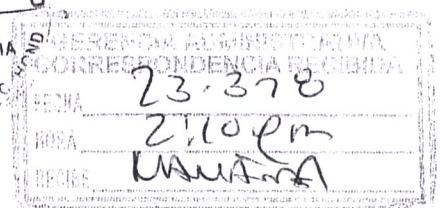 GERENCIA ADMINISTRATIVA
CORRESPONDENCIA RECIBIDA
FECHA 23.378
HORA 2:10 pm
RECIBE